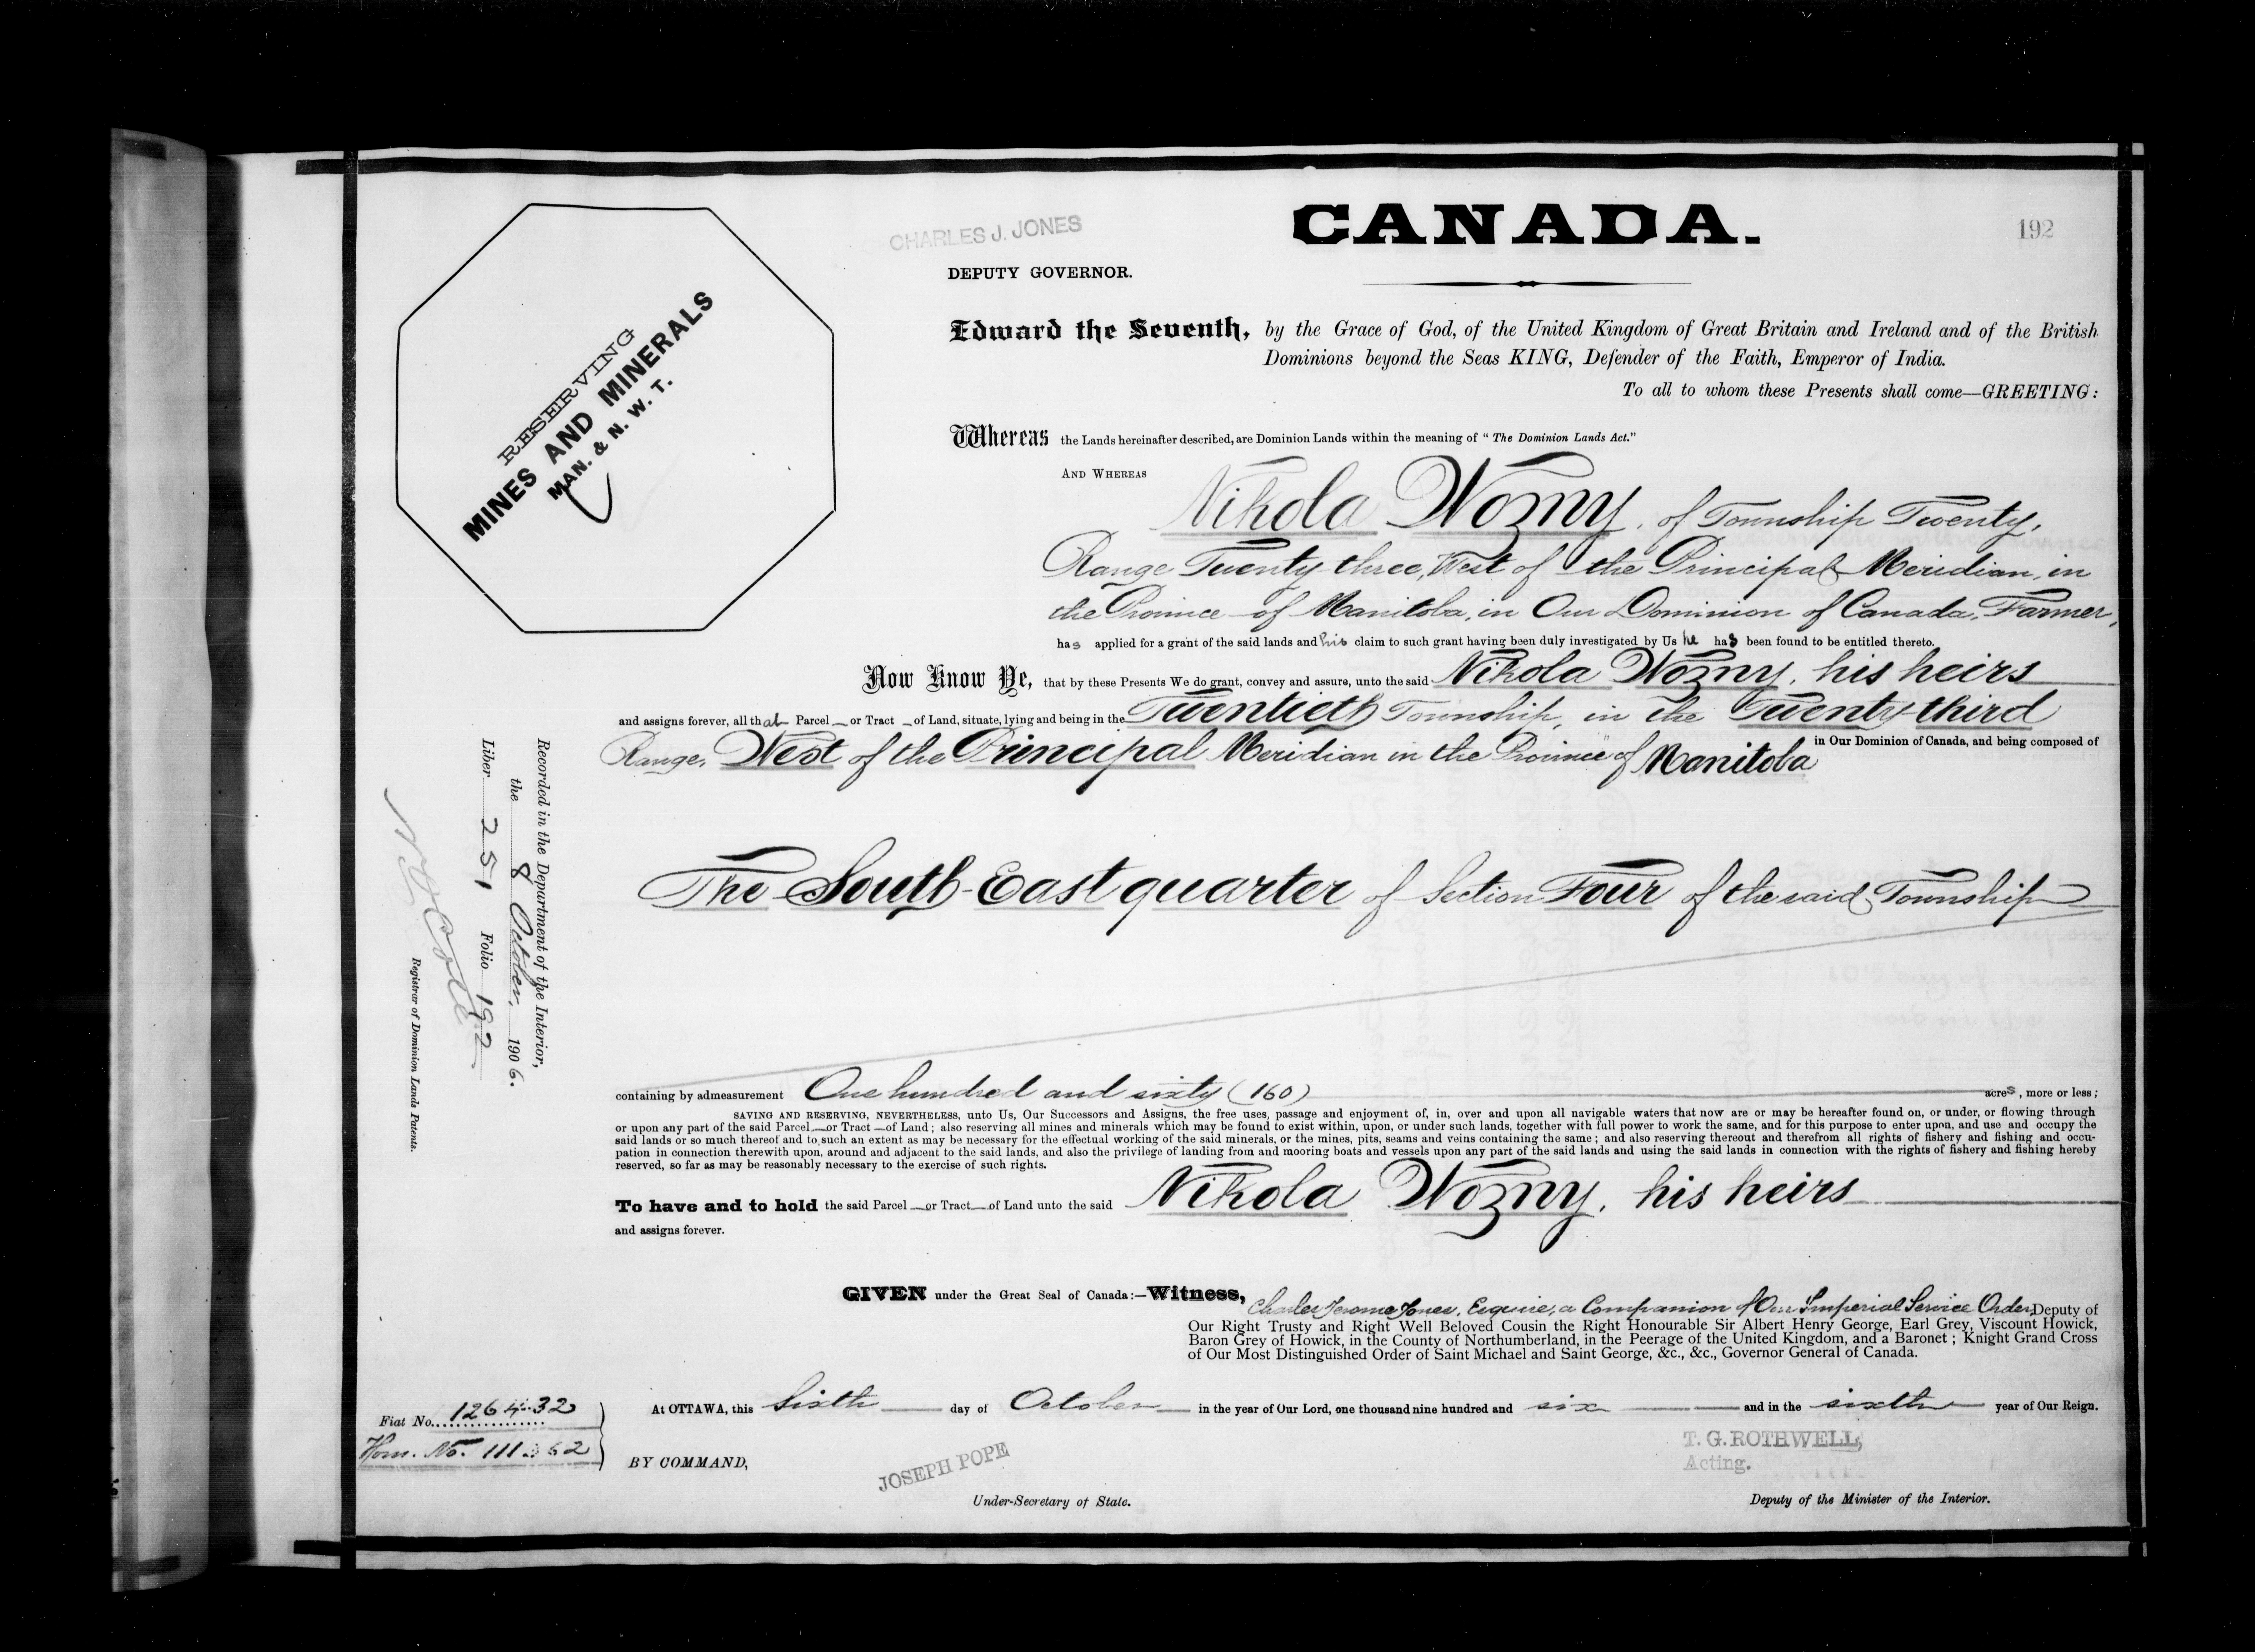 192
CHARLES J. JONES
CANADA.
DEPUTY GOVERNOR.
RESERVING
MINES AND MINERALS
MAN. & N. W. T.
Edward the Seventh, by the Grace of God, of the United Kingdom of Great Britain and Ireland and of the British
Dominions beyond the Seas KING, Defender of the Faith, Emperor of India.
To all to whom these Presents shall come—GREETING:
Whereas the Lands hereinafter described, are Dominion Lands within the meaning of "The Dominion Lands Act."
AND WHEREAS
Nikola Wozny, of Township Twenty,
Range Twenty-three, West of the Principal Meridian, in
the Province of Manitoba, in Our Dominion of Canada, Farmer,
has applied for a grant of the said lands and his claim to such grant having been duly investigated by Us he has been found to be entitled thereto.
Now Know Ye, that by these Presents We do grant, convey and assure, unto the said Nikola Wozny, his heirs
and assigns forever, all that Parcel or Tract of Land, situate, lying and being in the Twentieth Township, in the Twenty-third
Range, West of the Principal Meridian in the Province of Manitoba in Our Dominion of Canada, and being composed of
The South-East quarter of Section Four of the said Township
containing by admeasurement One hundred and sixty (160) acres, more or less;
SAVING AND RESERVING, NEVERTHELESS, unto Us, Our Successors and Assigns, the free uses, passage and enjoyment of, in, over and upon all navigable waters that now are or may be hereafter found on, or under, or flowing through
or upon any part of the said Parcel or Tract of Land; also reserving all mines and minerals which may be found to exist within, upon, or under such lands, together with full power to work the same, and for this purpose to enter upon, and use and occupy the
said lands or so much thereof and to such an extent as may be necessary for the effectual working of the said minerals, or the mines, pits, seams and veins containing the same; and also reserving thereout and therefrom all rights of fishery and fishing and occu-
pation in connection therewith upon, around and adjacent to the said lands, and also the privilege of landing from and mooring boats and vessels upon any part of the said lands and using the said lands in connection with the rights of fishery and fishing hereby
reserved, so far as may be reasonably necessary to the exercise of such rights.
To have and to hold the said Parcel or Tract of Land unto the said Nikola Wozny, his heirs
and assigns forever.
GIVEN under the Great Seal of Canada:—Witness, Charles Jerome Jones, Esquire, a Companion of Our Imperial Service Order, Deputy of
Our Right Trusty and Right Well Beloved Cousin the Right Honourable Sir Albert Henry George, Earl Grey, Viscount Howick,
Baron Grey of Howick, in the County of Northumberland, in the Peerage of the United Kingdom, and a Baronet; Knight Grand Cross
of Our Most Distinguished Order of Saint Michael and Saint George, &c., &c., Governor General of Canada.
At OTTAWA, this Sixth day of October in the year of Our Lord, one thousand nine hundred and six and in the sixth year of Our Reign.
BY COMMAND,
JOSEPH POPE
Under-Secretary of State.
T. G. ROTHWELL,
Acting.
Deputy of the Minister of the Interior.
Fiat No. 126432
Hom. No. 111362
Recorded in the Department of the Interior,
the 8 October, 1906.
Liber 251 Folio 192
Registrar of Dominion Lands Patents.